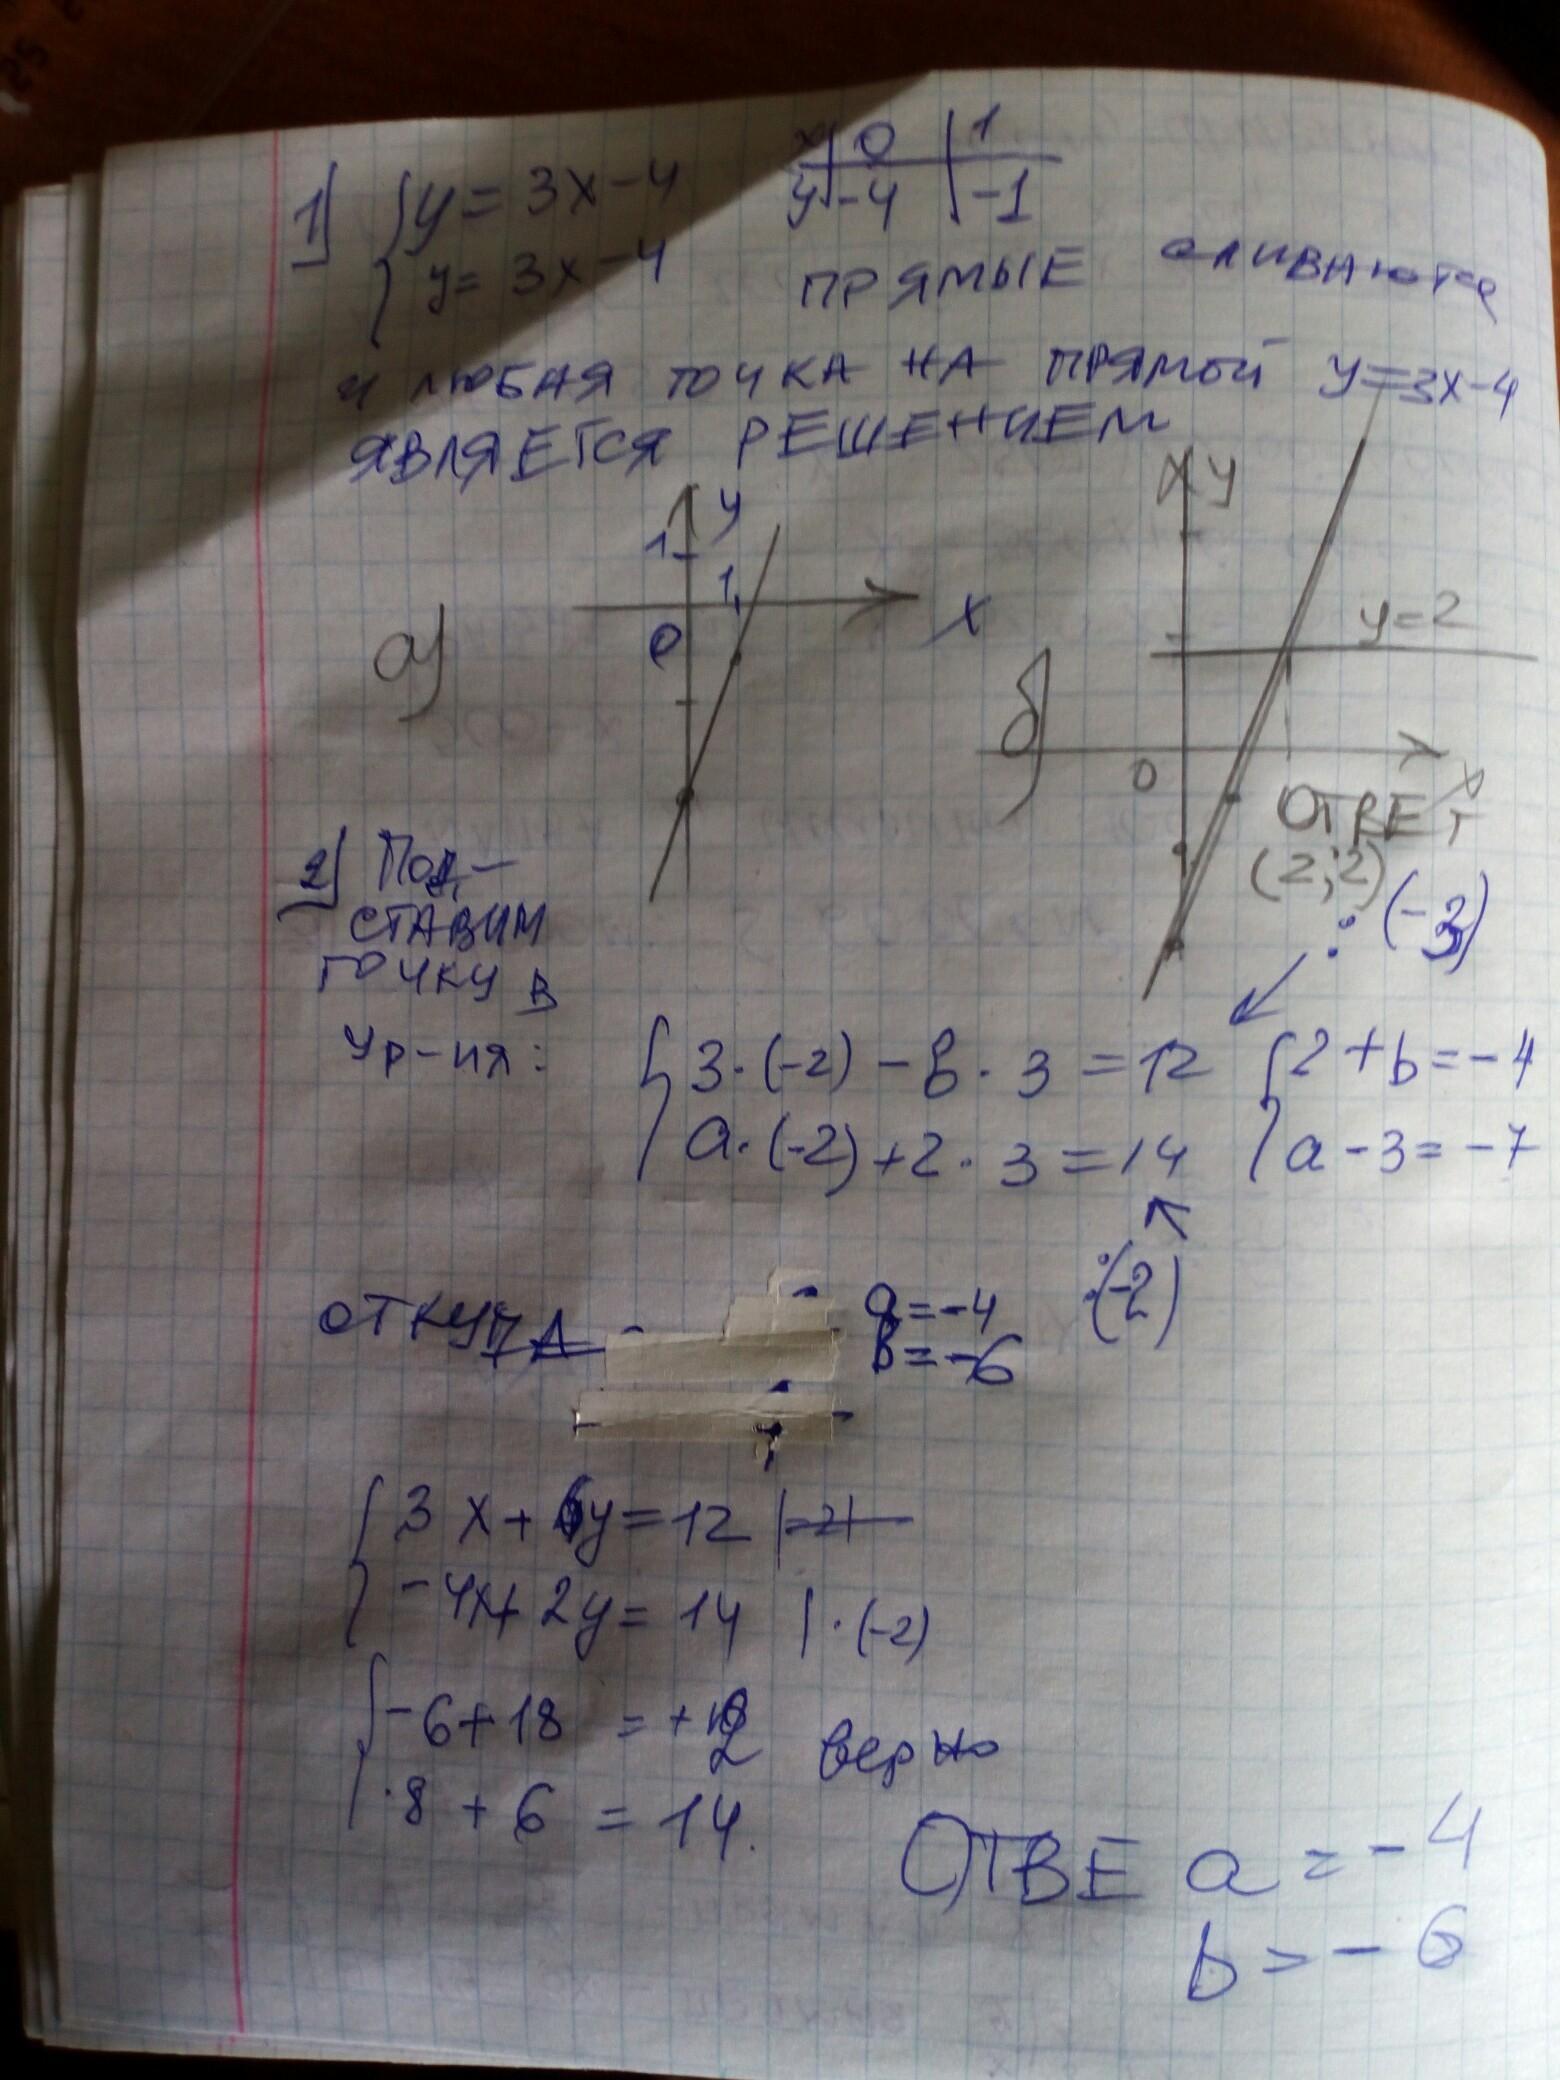 1) { y = 3x - 4
x | 0 | 1
y | -4 | -1
y = 3x - 4
ПРЯМЫЕ сливаются
и любая точка на прямой y = 3x - 4
является решением
а)
y
1
1
0
x
б)
x y
y = 2
0
x
ОТВЕТ
(2; 2)
2) Под-
ставим
точку в
ур-ия:
: (-3)
{ 3 · (-2) - b · 3 = 12 { 2 + b = -4
a · (-2) + 2 · 3 = 14 a - 3 = -7
: (-2)
откуда a = -4
b = -6
{ 3x + 6y = 12
-4x + 2y = 14 | · (-2)
{ -6 + 18 = +12 верно
8 + 6 = 14.
ОТВЕ a = -4
b = -6